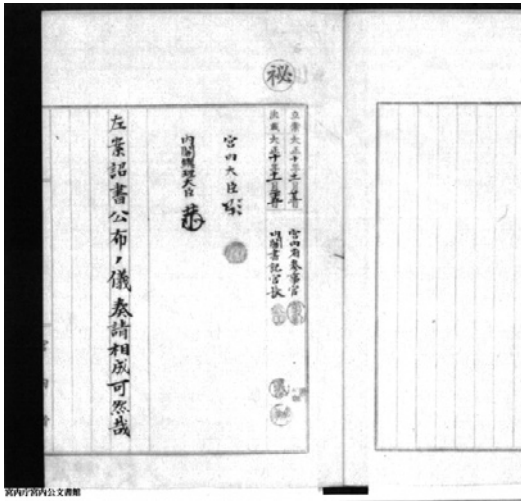 秘
立案大正十年十一月 日
決裁大正十年十一月 日
宮内省参事官
内閣書記官長
宮内大臣
内閣総理大臣
左案詔書公布ノ儀奏請相成可然哉
宮内庁宮内公文書館